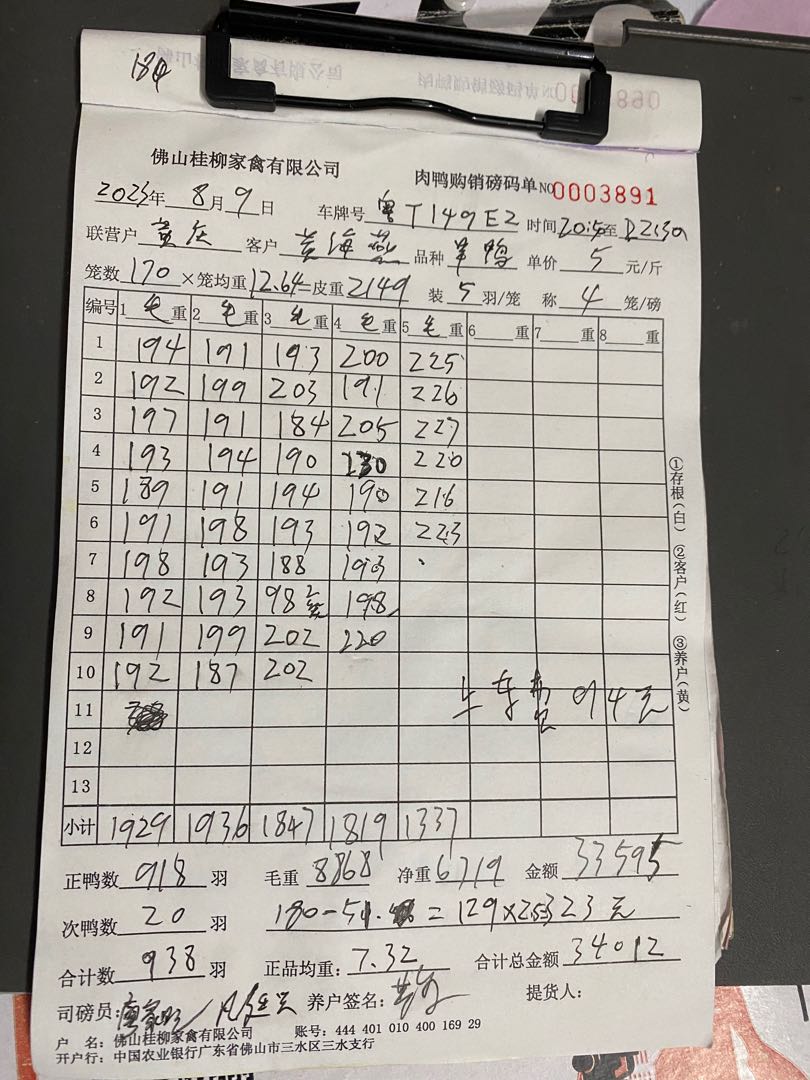 184
佛山桂柳家禽有限公司
肉鸭购销磅码单 NO 0003891
2023年 8月 9日 车牌号 粤T149E2 时间 至
联营户 客户 黄海燕 品种 单价 5 元/斤
笼数 170 ×笼均重 12.64 =皮重 2149 装 5 羽/笼 称 4 笼/磅
编号 1 毛重 2 毛重 3 毛重 4 毛重 5 毛重 6 重 7 重 8 重
1 194 191 193 200 225
2 192 199 203 191 226
3 197 191 184 205 227
4 193 194 190 230 220
5 189 191 194 190 216
6 191 198 193 192 223
7 198 193 188 193
8 192 193 98 198
9 191 199 202 220
10 192 187 202
上车费 914元
11
12
13
小计 1929 1936 1847 1819 1337
正鸭数 918 羽 毛重 8868 净重 6719 金额 33595
次鸭数 20 羽 180-51. = 129× 23元
合计数 938 羽 正品均重: 7.32 合计总金额 34012
司磅员: 养户签名: 提货人:
户 名: 佛山桂柳家禽有限公司 账号: 444 401 010 400 169 29
开户行: 中国农业银行广东省佛山市三水区三水支行
①存根(白) ②客户(红) ③养户(黄)